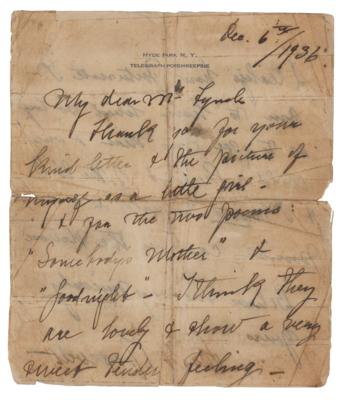 Dec. 6th/1936.
HYDE PARK, N. Y.
TELEGRAPH POUGHKEEPSIE
My dear Mr Lynch
Thank you for your
kind letter & the picture of
myself as a little girl -
& for the two poems:
"Somebody's Mother" &
"Goodnight" - I think they
are lovely & show a very
sweet tender feeling -